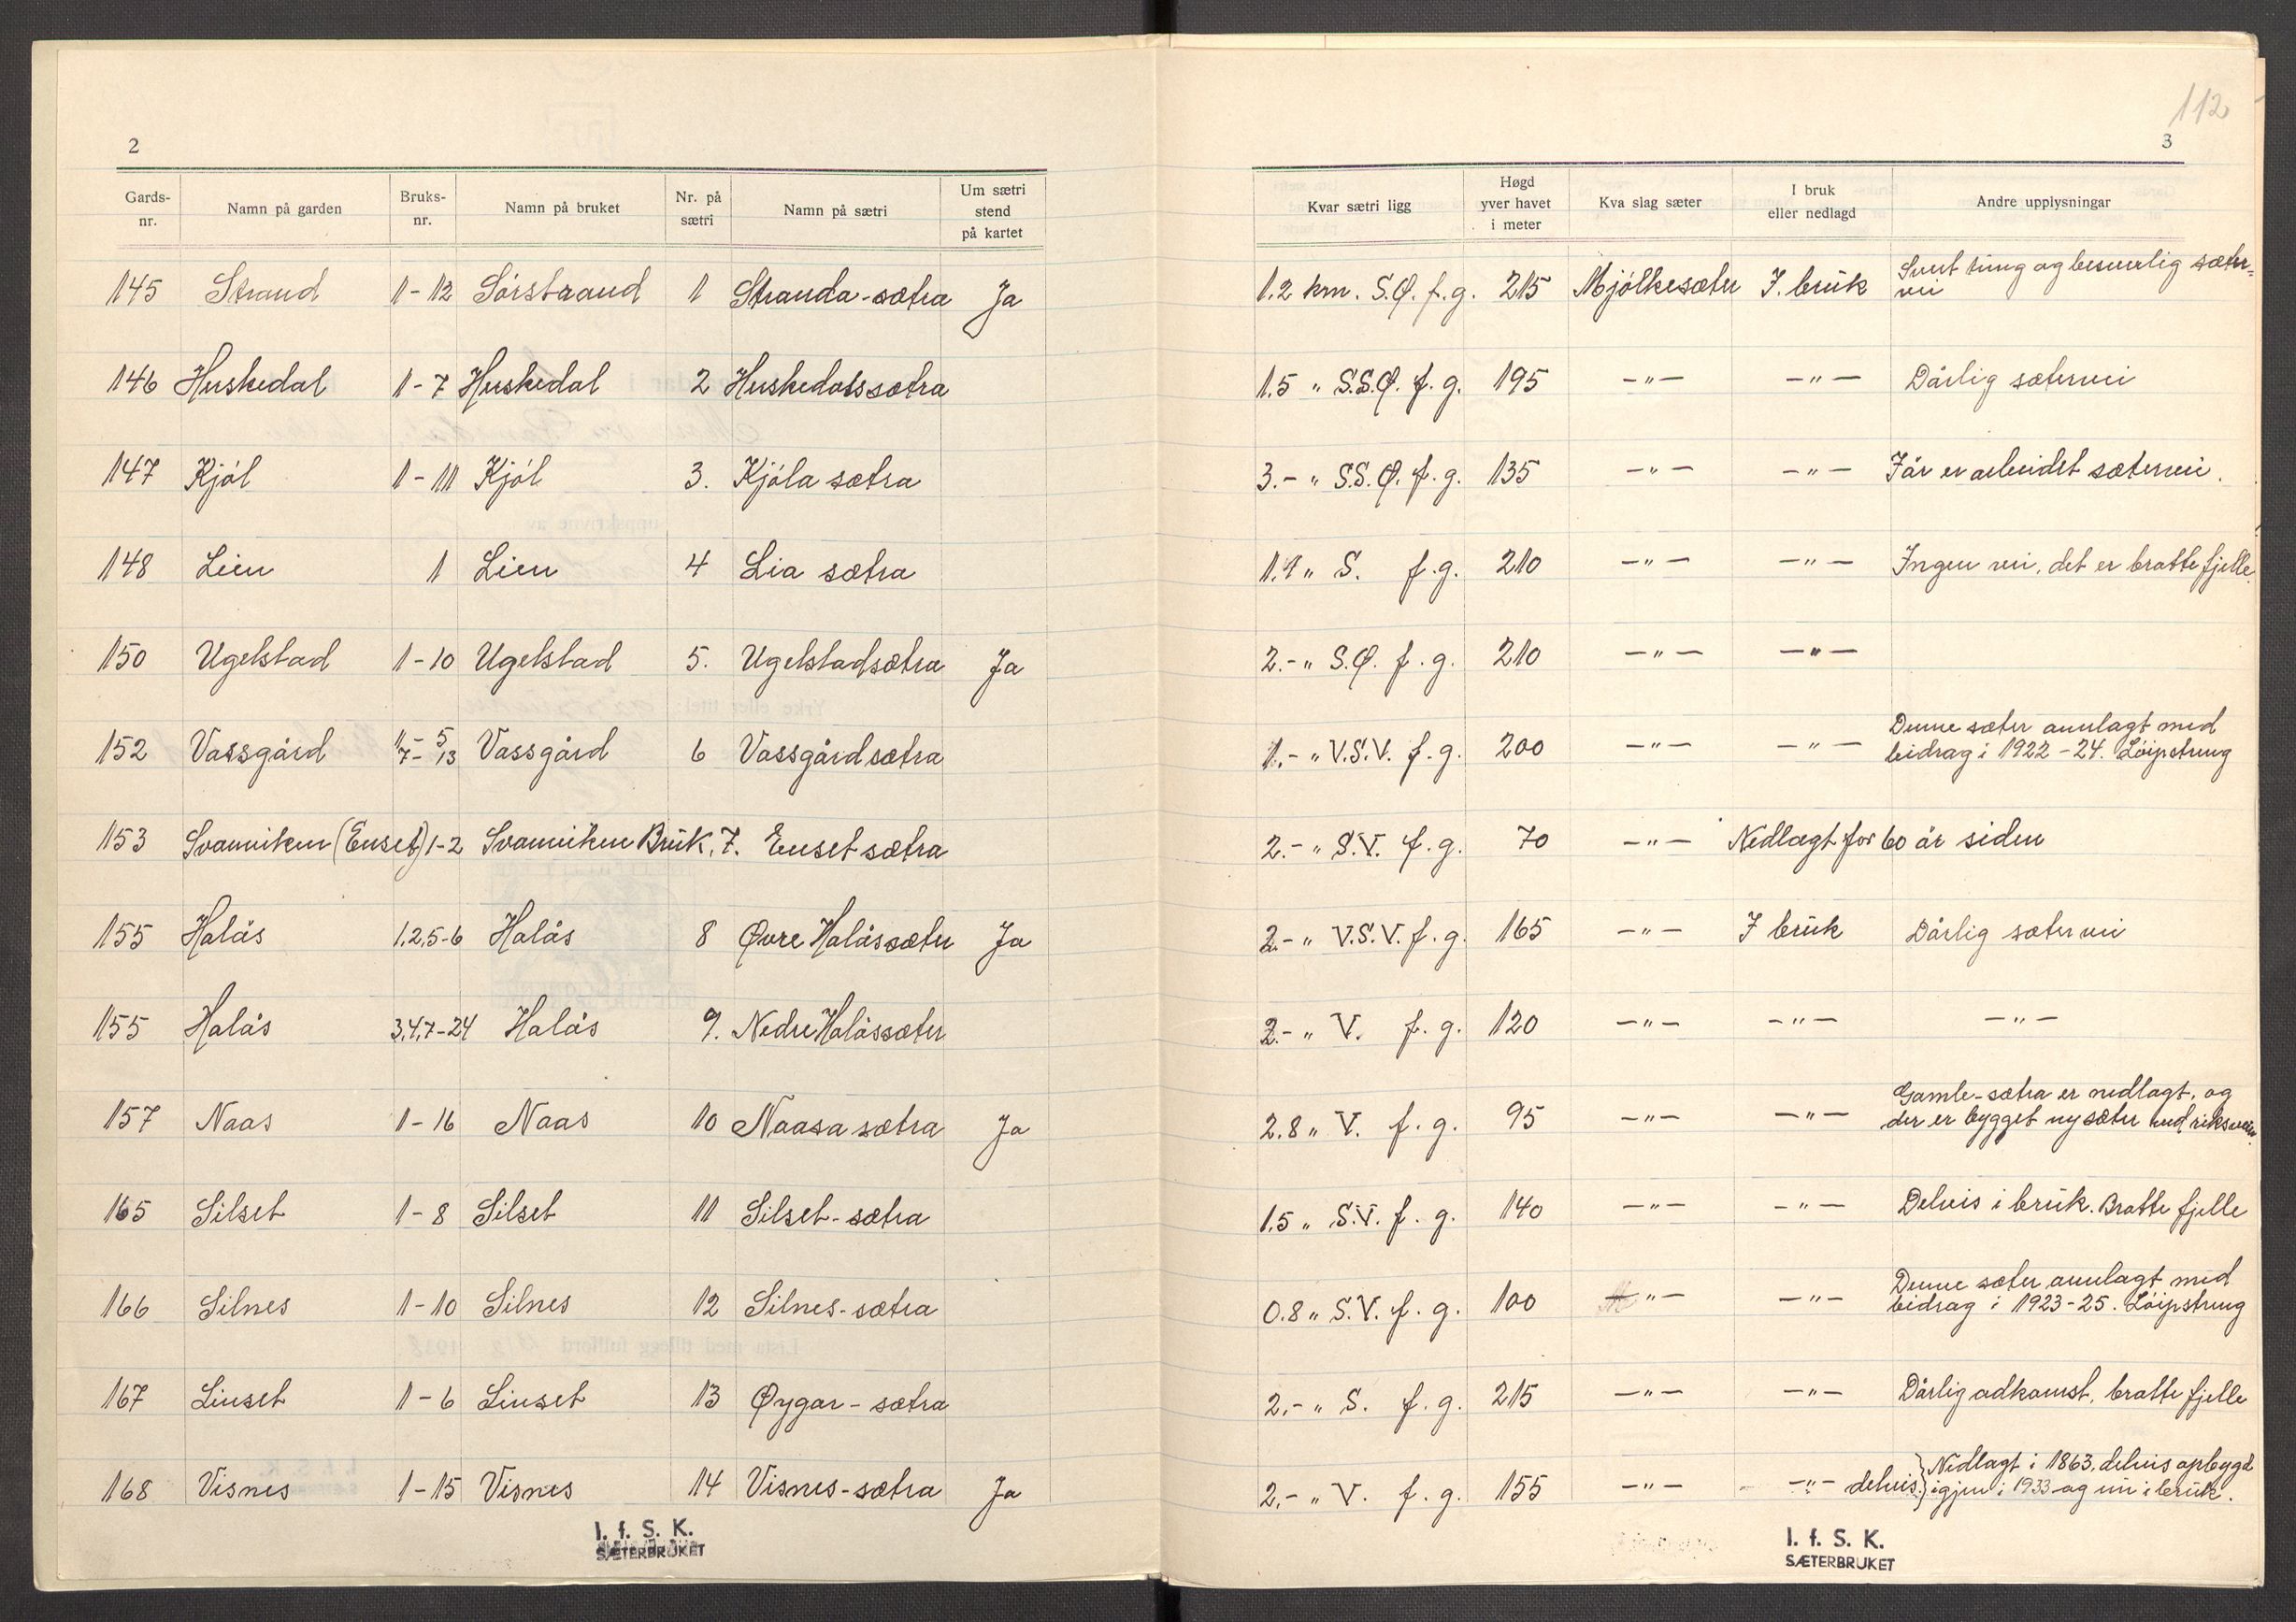 2
Gards-nr. Namn på garden Bruks-nr. Namn på bruket Nr. på sætri Namn på sætri Um sætri stend på kartet
145 Strand 1-12 Sörstrand 1 Stranda-sætra Ja
146 Huskedal 1-7 Huskedal 2 Huskedalssætra
147 Kjöl 1-111 Kjöl 3. Kjöla sætra
148 Lien 1 Lien 4 Lia sætra
150 Ugelstad 1-10 Ugelstad 5. Ugelstadsætra Ja
152 Vassgård 1-5 7-13 Vassgård 6 Vassgårdsætra
153 Svanviken (Enset) 1-2 Svanviken Brük, 7. Enset sætra
155 Halås 1,2,5-6 Halås 8 Øvre Halåssæter Ja
155 Halås 3,4,7-24 Halås 9. Nedre Halåssæter
157 Naas 1-16 Naas 10 Naasa sætra Ja
165 Silset 1-8 Silset 11 Silset-sætra
166 Silnes 1-10 Silnes 12 Silnes-sætra
167 Linset 1-6 Linset 13 Øygar-sætra
168 Visnes 1-15 Visnes 14 Visnes-sætra Ja
I. f. S. K.
SÆTERBRUKET
112
3
Kvar sætri ligg Høgd yver havet i meter Kva slag sæter I bruk eller nedlagd Andre upplysningar
1.2 km. S.Ø. f.g. 215 Mjölkesæter I. brük Svert tung og besverlig sæter=
vei
1.5 " S.S.Ø. f.g. 195 -"- -"- Dårlig sætervei
3.- " S.S.Ø. f.g. 135 -"- -"- I år er arbeidet sætervei.
1.1 " S. f.g. 210 -"- -"- Ingen vei, det er bratte fjelle.
2.- " S.Ø. f.g. 210 -"- -"-
1.- " V.S.V. f.g. 200 -"- -"- Denne sæter annlagt med
beidrag i 1922-24. Löipstreng
2.- " S.V. f.g. 70 -"- Nedlagt for 60 år siden
2.- " V.S.V. f.g. 165 -"- I brük Dårlig sætervei
2.- " V. f.g. 120 -"- -"- -"-
2.8 " V. f.g. 95 -"- -"- Gamle-sætra er nedlagt, og
der er bygget ny sæter ved riksveien.
1.5 " S.V. f.g. 140 -"- -"- Delvis i brük. Bratte fjelle
0.8 " S.V. f.g. 100 -"- -"- Denne sæter annlagt med
beidrag i 1923-25. Löipstreng
2.- " S. f.g. 215 -"- -"- Dårlig adkomst, bratte fjelle
2.- " V. f.g. 155 -"- -"- delvis } Nedlagt i 1863, delvis opbygd
igjen i 1933 og nü i brük.
I. f. S. K.
SÆTERBRUKET